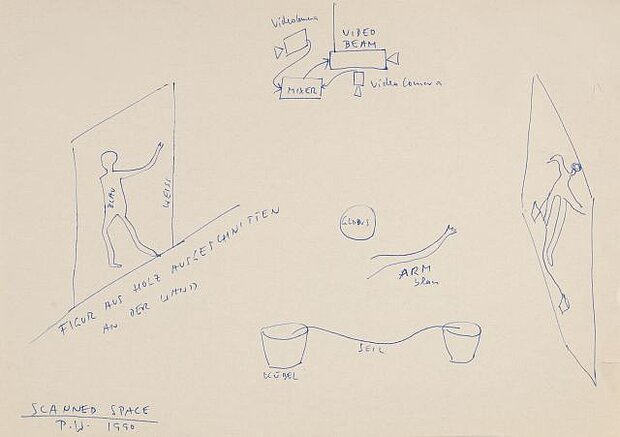 Videokamera
VIDEO
BEAM
MIXER
Videokamera
BLAU
WEISS
GLOBUS
ARM
blau
FIGUR AUS HOLZ AUSGESCHNITTEN
AN DER WAND
SEIL
KÜBEL
SCANNED SPACE
P.W. 1990